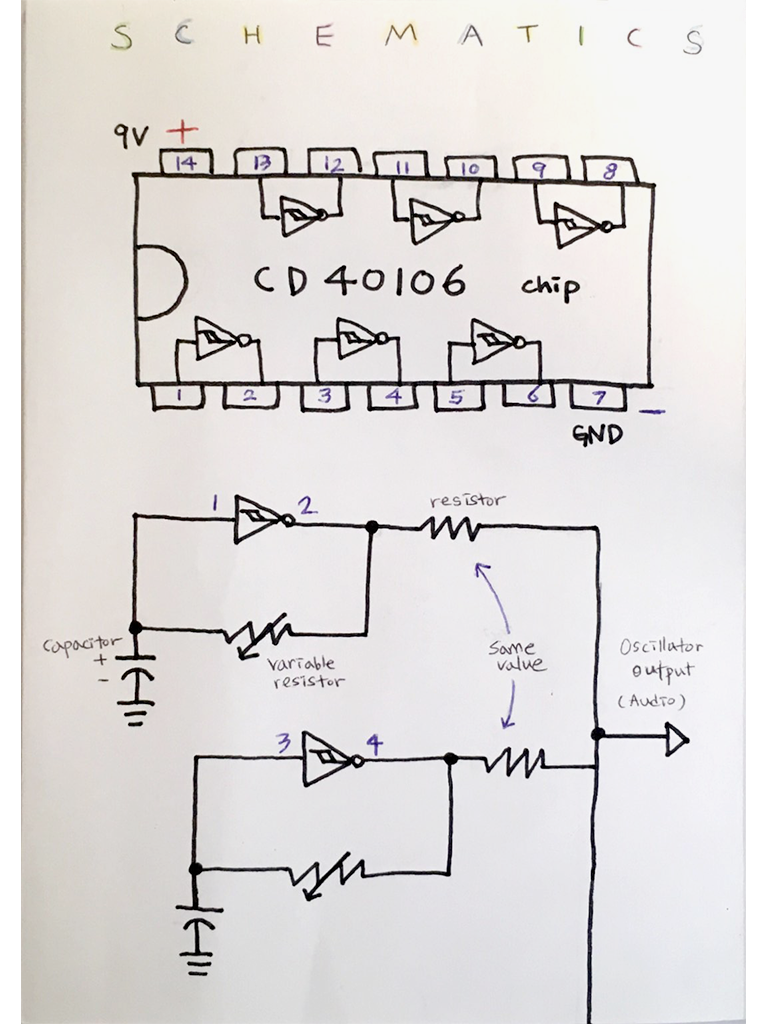 SCHEMATICS
9V +
14 13 12 11 10 9 8
CD40106 chip
1 2 3 4 5 6 7 -
GND
1 2 resistor
capacitor
+
-
variable
resistor
same
value
Oscillator
output
(Audio)
3 4